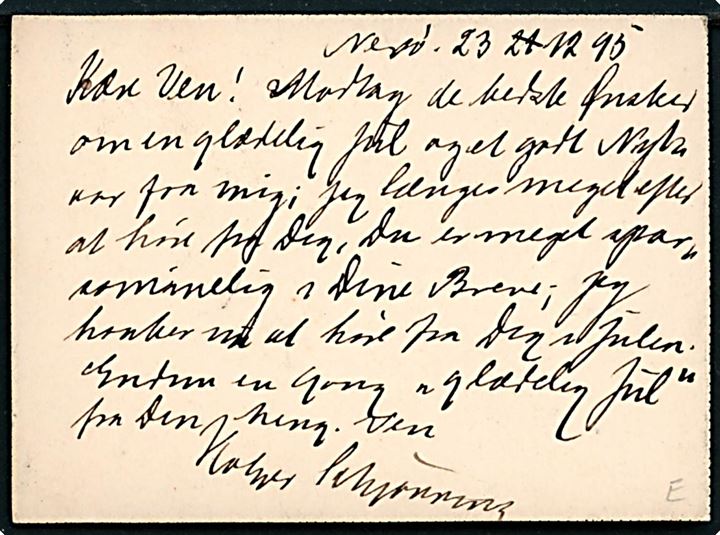 Nexø. 23 12 95
Kære Ven! Modtag de bedste Ønsker
om en glædelig Jul og et godt Nyt-
aar fra mig; jeg længes meget efter
at høre fra Dig, Du er meget spar„
sommelig i Dine Breve; jeg
haaber nu at høre fra Dig i Julen.
Endnu en Gang „glædelig Jul"
fra Din heng. Ven
Holger
E